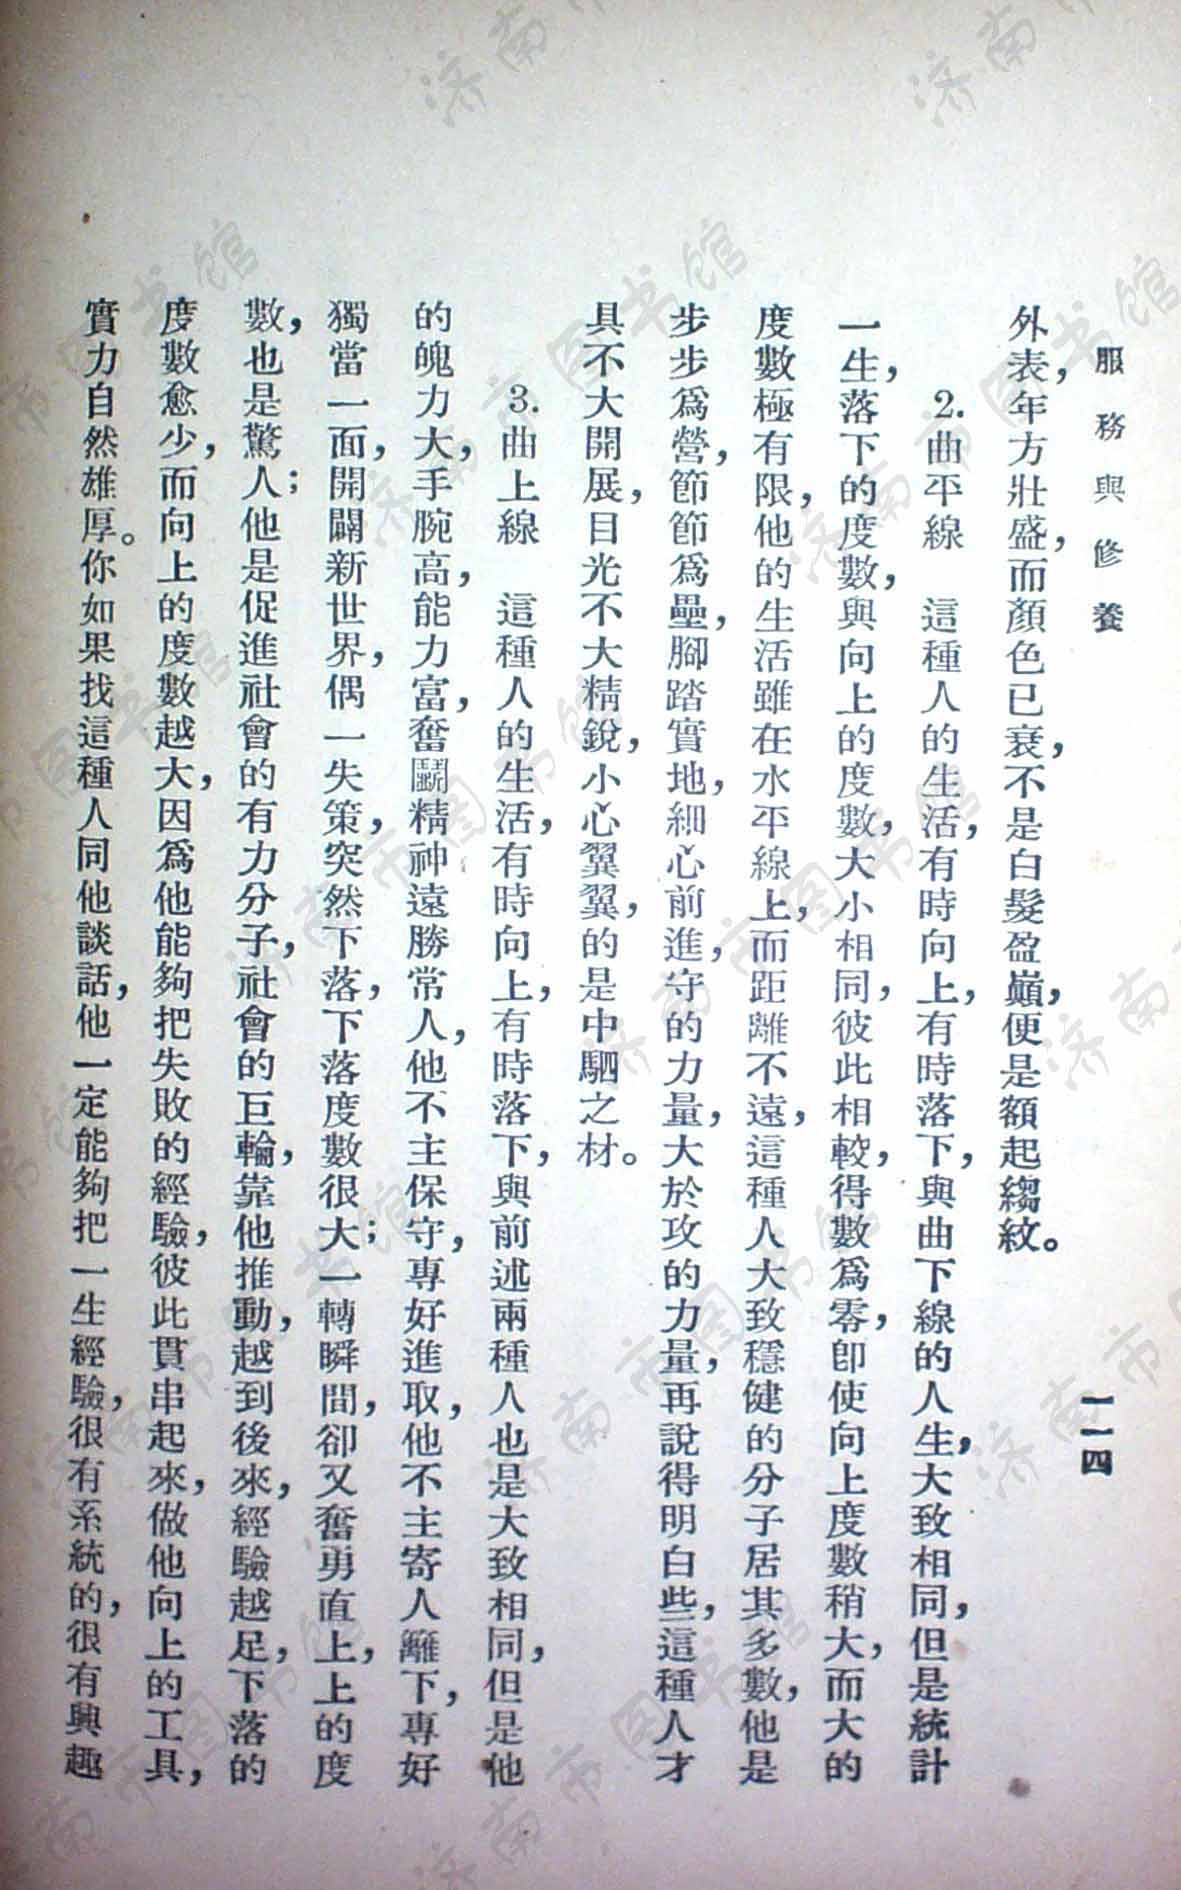 服務與修養
一一四
外表，年方壯盛，而顏色已衰，不是白髮盈巔，便是額起縐紋。
2.曲平線　這種人的生活，有時向上，有時落下，與曲下線的人生，大致相同，但是統計
一生，落下的度數，與向上的度數，大小相同，彼此相較，得數爲零，卽使向上度數稍大，而大的
度數極有限，他的生活雖在水平線上，而距離不遠，這種人大致穩健的分子居其多數，他是
步步爲營，節節爲壘，腳踏實地，細心前進，守的力量，大於攻的力量，再說得明白些，這種人才
具不大開展，目光不大精銳，小心翼翼，的是中駟之材。
3.曲上線　這種人的生活，有時向上，有時落下，與前述兩種人也是大致相同，但是他
的魄力大，手腕高，能力富，奮鬭精神遠勝常人，他不主保守，專好進取，他不主寄人籬下，專好
獨當一面，開闢新世界，偶一失策，突然下落，下落度數很大；一轉瞬間，卻又奮勇直上，上的度
數，也是驚人；他是促進社會的有力分子，社會的巨輪，靠他推動，越到後來，經驗越足，下落的
度數愈少，而向上的度數越大，因爲他能夠把失敗的經驗，彼此貫串起來，做他向上的工具，
實力自然雄厚。你如果找這種人同他談話，他一定能夠把一生經驗，很有系統的，很有興趣
济南市图书馆